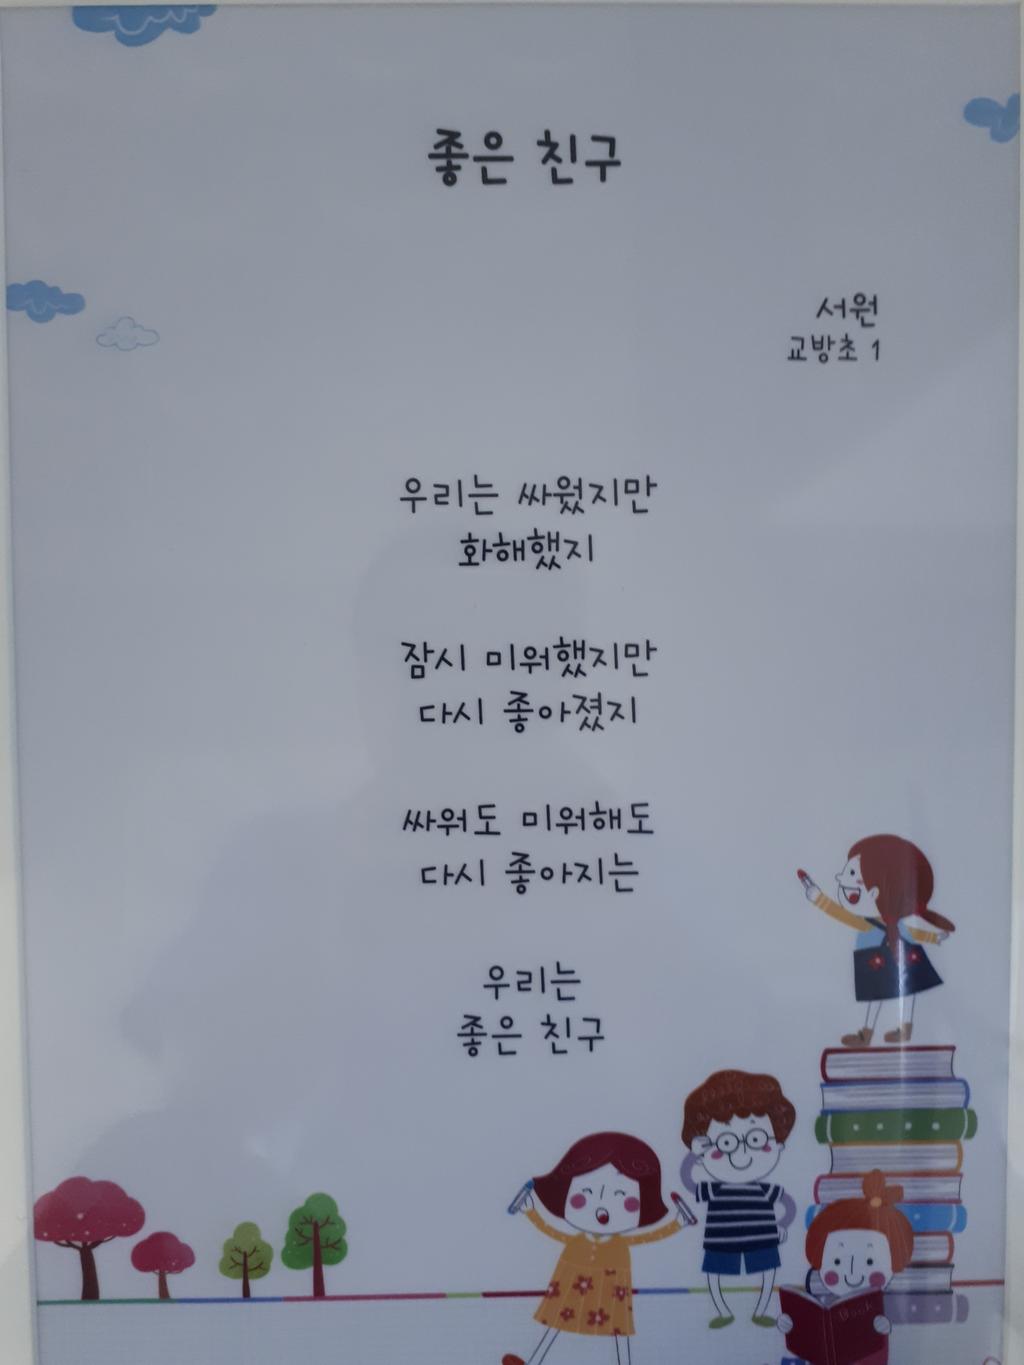 좋은 친구
서원
교방초 1
우리는 싸웠지만
화해했지
잠시 미워했지만
다시 좋아졌지
싸워도 미워해도
다시 좋아지는
우리는
좋은 친구
Book